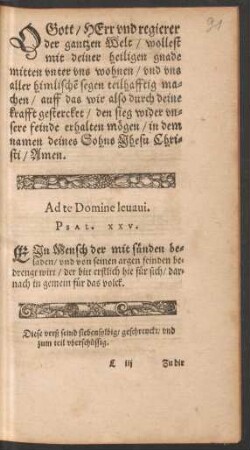 91
O Gott / HErr vnd regierer
der gantzen Welt / wollest
mit deiner heiligen gnade
mitten vnter vns wohnen / vnd vns
aller himlischẽ segen teilhafftig ma-
chen / auff das wir also durch deine
krafft gestercket / den sieg wider vn-
sere feinde erhalten mögen / in dem
namen deines Sohns Jhesu Chri-
sti / Amen.
Ad te Domine leuaui.
PSAL. XXV.
EIn Mensch der mit sünden be-
laden / vnd von seinen argen feinden be-
drenget wirt / der bitt erstlich hie für sich / dar-
nach in gemein für das volck.
Diese verß seind siebensylbig / geschrenckt / vnd
zum teil vberschüssig.
E iij In dir